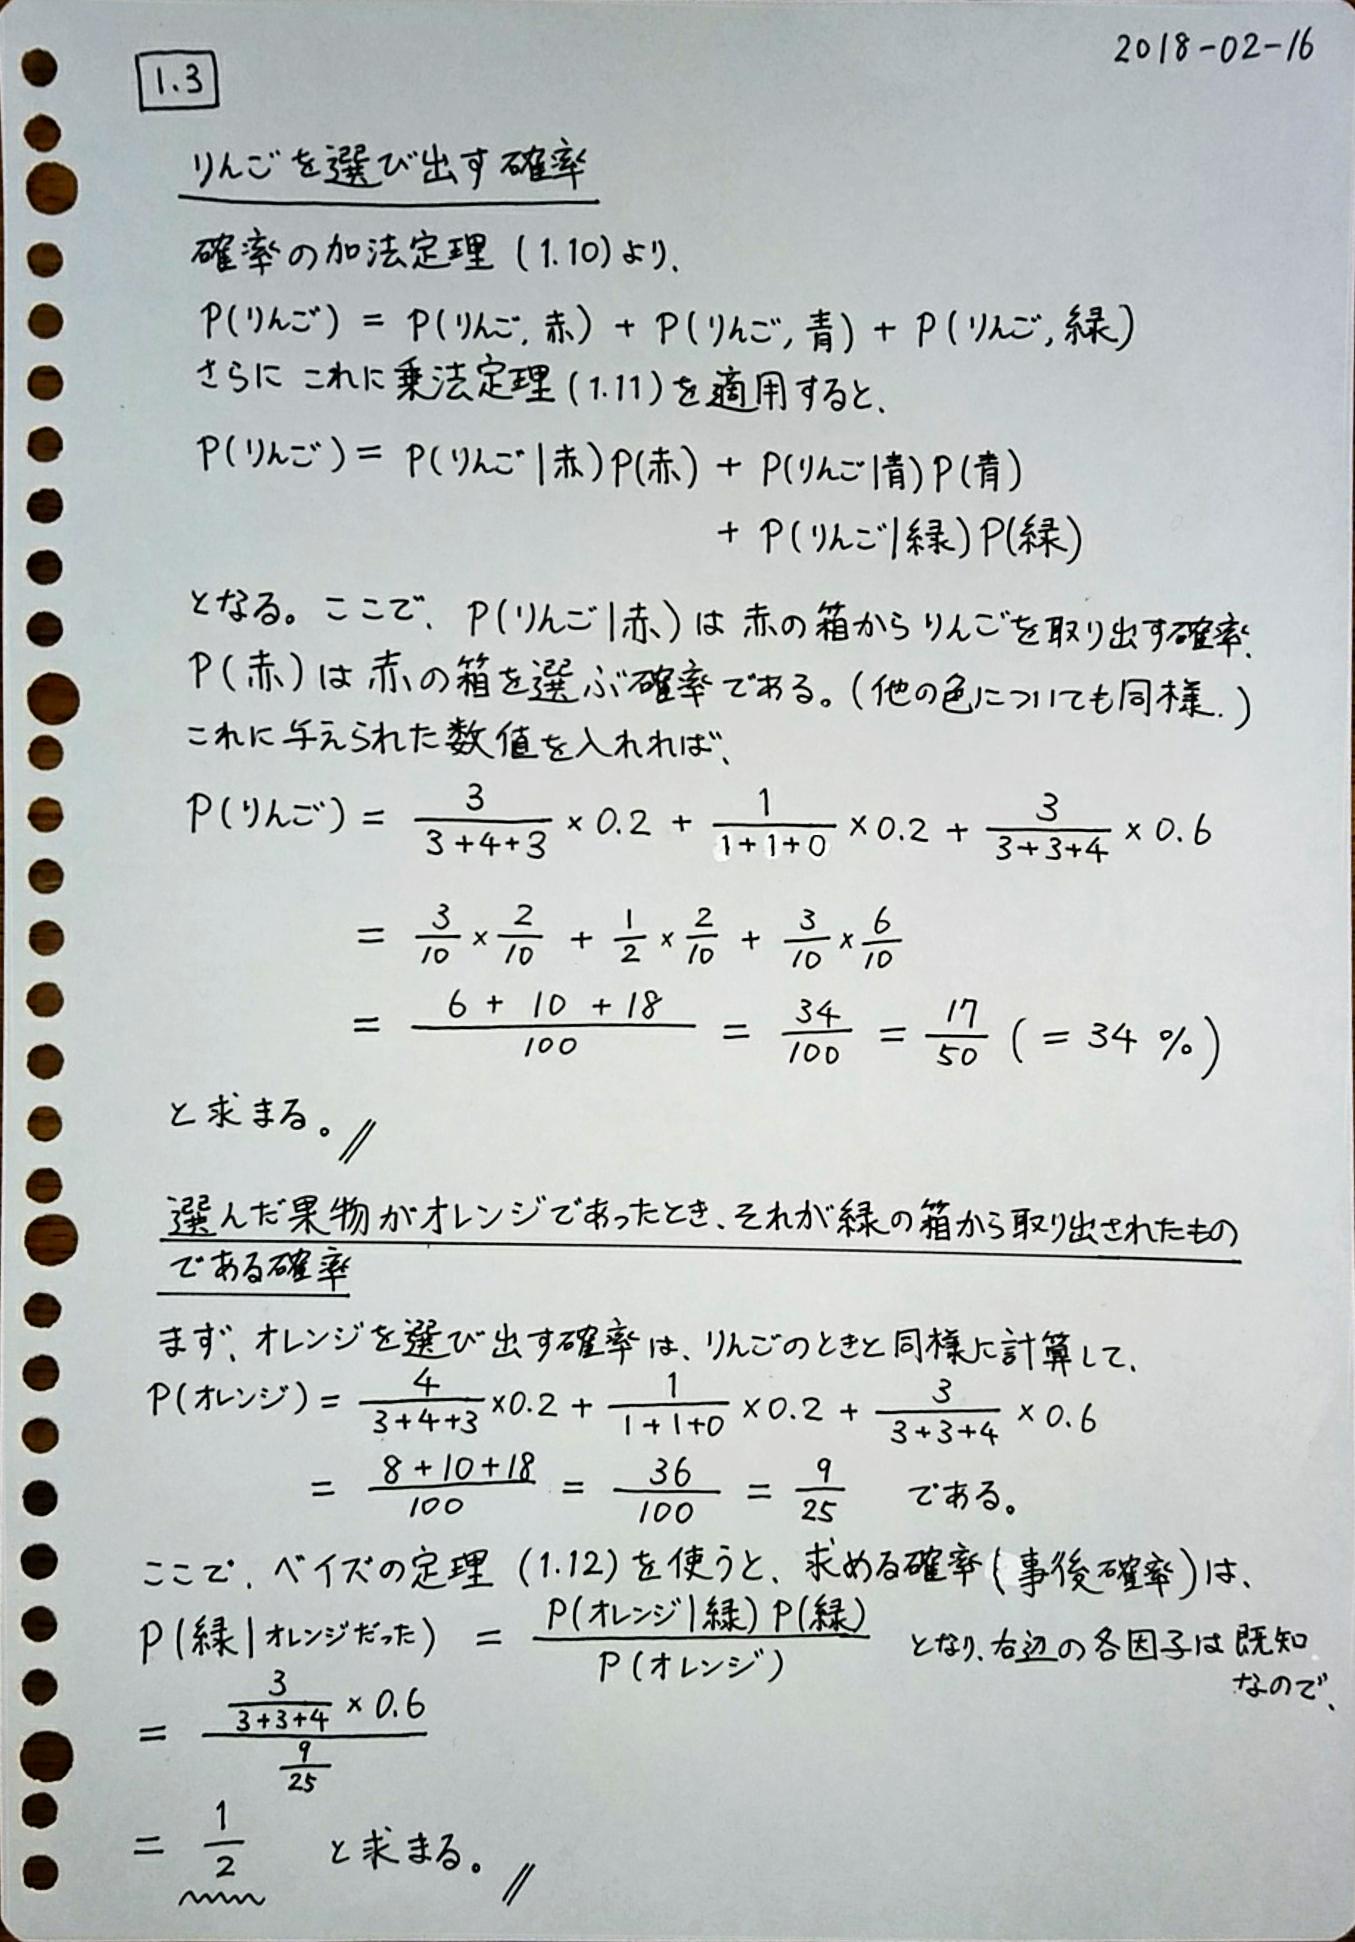 2018-02-16
1.3
りんごを選び出す確率
確率の加法定理 (1.10)より、
P(りんご) = P(りんご, 赤) + P(りんご, 青) + P(りんご, 緑)
さらに これに乗法定理(1.11)を適用すると、
P(りんご) = P(りんご|赤)P(赤) + P(りんご|青)P(青)
+ P(りんご|緑)P(緑)
となる。ここで、P(りんご|赤)は 赤の箱からりんごを取り出す確率、
P(赤)は赤の箱を選ぶ確率である。(他の色についても同様.)
これに与えられた数値を入れれば、
P(りんご) = 3/(3+4+3) × 0.2 + 1/(1+1+0) × 0.2 + 3/(3+3+4) × 0.6
= 3/10 × 2/10 + 1/2 × 2/10 + 3/10 × 6/10
= (6 + 10 + 18)/100 = 34/100 = 17/50 (= 34 %)
と求まる。//
選んだ果物がオレンジであったとき、それが緑の箱から取り出されたもの
である確率
まず、オレンジを選び出す確率は、りんごのときと同様に計算して、
P(オレンジ) = 4/(3+4+3) × 0.2 + 1/(1+1+0) × 0.2 + 3/(3+3+4) × 0.6
= (8+10+18)/100 = 36/100 = 9/25 である。
ここで、ベイズの定理 (1.12)を使うと、求める確率(事後確率)は、
P(緑|オレンジだった) = P(オレンジ|緑)P(緑)/P(オレンジ) となり、右辺の各因子は既知
なので、
= (3/(3+3+4) × 0.6)/(9/25)
= 1/2 と求まる。//